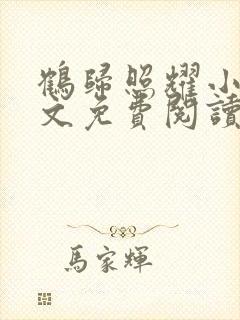 鶴歸照耀小
文免費閱讀
馬家輝